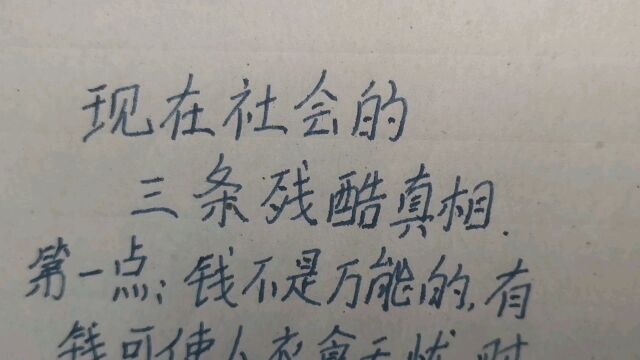 现在社会的
三条残酷真相.
第一点:钱不是万能的,有
钱可使人衣食无忧,对